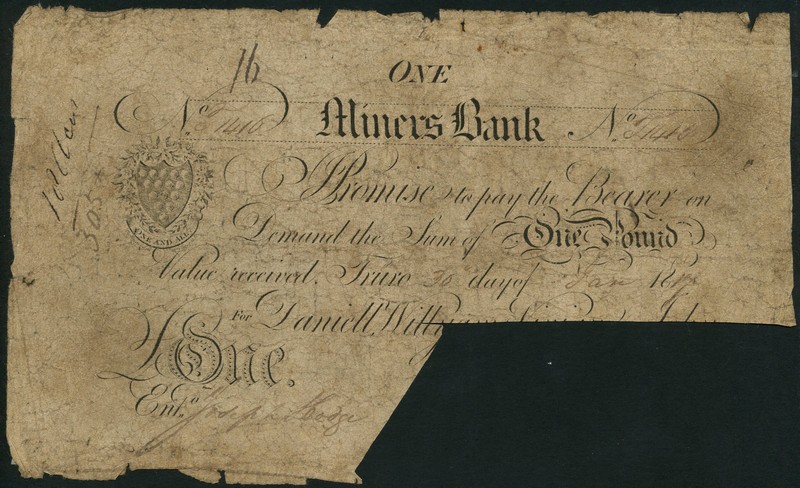 16
ONE
No Miners Bank No
I Promise to pay the Bearer on
Demand the Sum of One Pound
Value received. Truro 30 day of Jan 18
ONE AND ALL
For Daniell Will
£One.
Entd Joseph Hodge
305